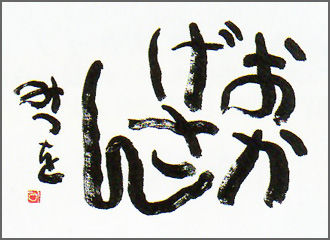 おか
げさ
ん
みつを